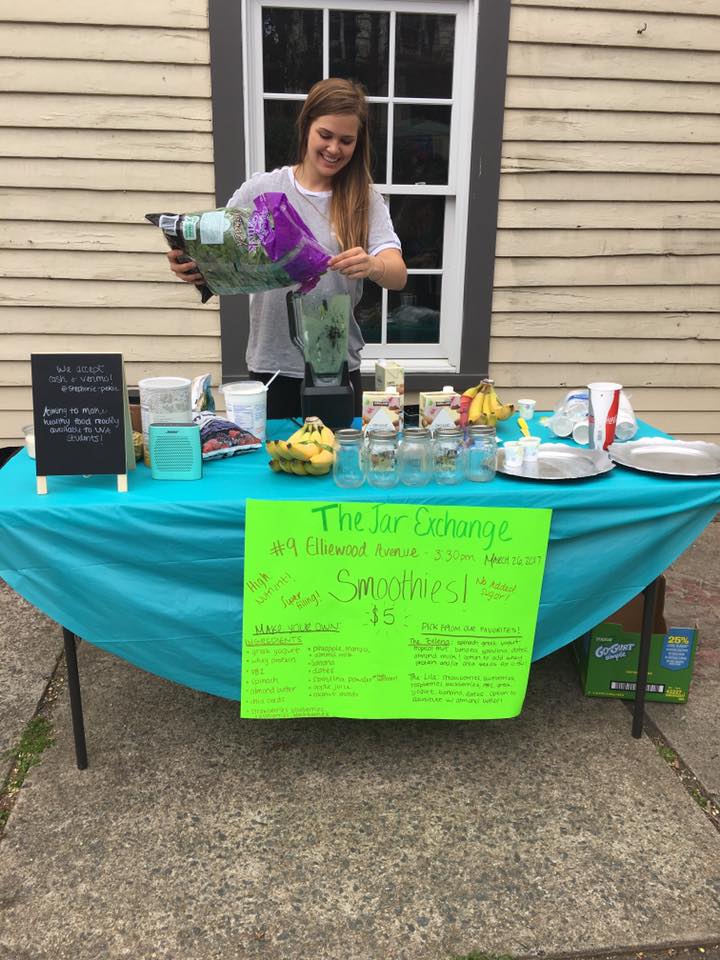 We accept
cash & venmo!
Aiming to make
healthy food readily
available to UVA
students!
The Jar Exchange
#9 Elliewood Avenue - 3:30pm March 26, 2017
High
Nutrient!
Super
filling!
Smoothies!
$5
No Added
Sugar!
Make your own:
Ingredients
• greek yogurt
• whey protein
• PB2
• spinach
• almond butter
• chia seeds
• strawberries, blueberries,
raspberries, blackberries
• pineapple, mango,
• almond milk
• banana
• dates
• spirulina powder
• apple juice
• coconut shreds
Pick from our favorites!
spinach, greek yogurt,
tropical fruit, banana, spirulina, dates,
almond milk! option to add whey
protein and/or chia seeds for
The Lila: strawberries, blueberries,
raspberries, blackberries, PB2, greek
yogurt, banana, dates. option to
substitute w/ almond butter!
BOSE
Yoplait
GO-GURT
simply
25%
LESS
SUGAR